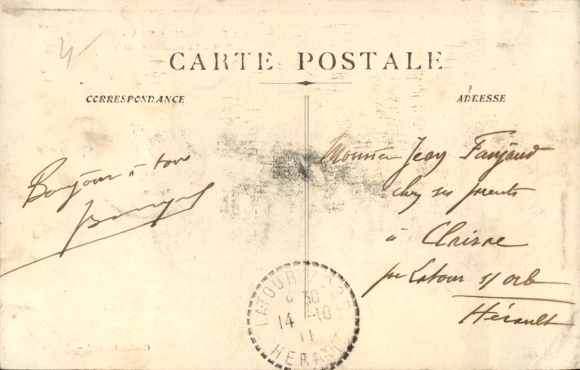 CARTE POSTALE
CORRESPONDANCE
ADRESSE
Bonjour à tous
Monsieur Jean Faujaud
chez ses parents
à Clairac
par Latour s/ orb
Hérault
LATOUR
6 30
14 -10
11
HERAULT